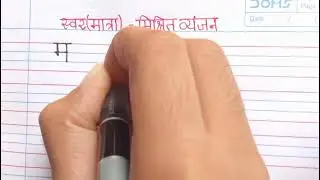 स्वर(मात्रा) - मिश्रित व्यंजन
म